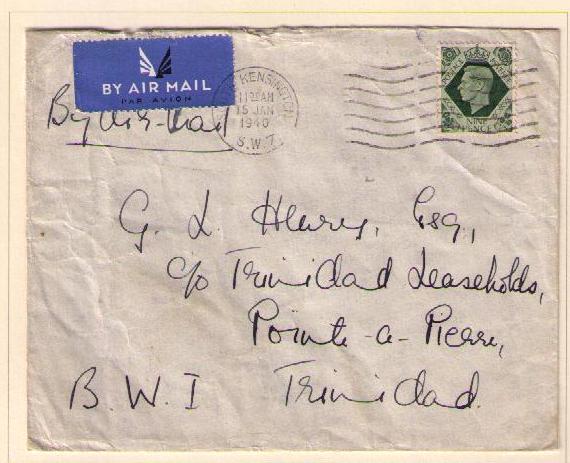 BY AIR MAIL
PAR AVION
By Air-Mail
KENSINGTON
11 AM
15 JAN
1940
S.W.7
NINE
PENCE
G. L. Henry, Esq.,
c/o Trinidad Leaseholds,
Pointe-a-Pierre,
B.W.I Trinidad.